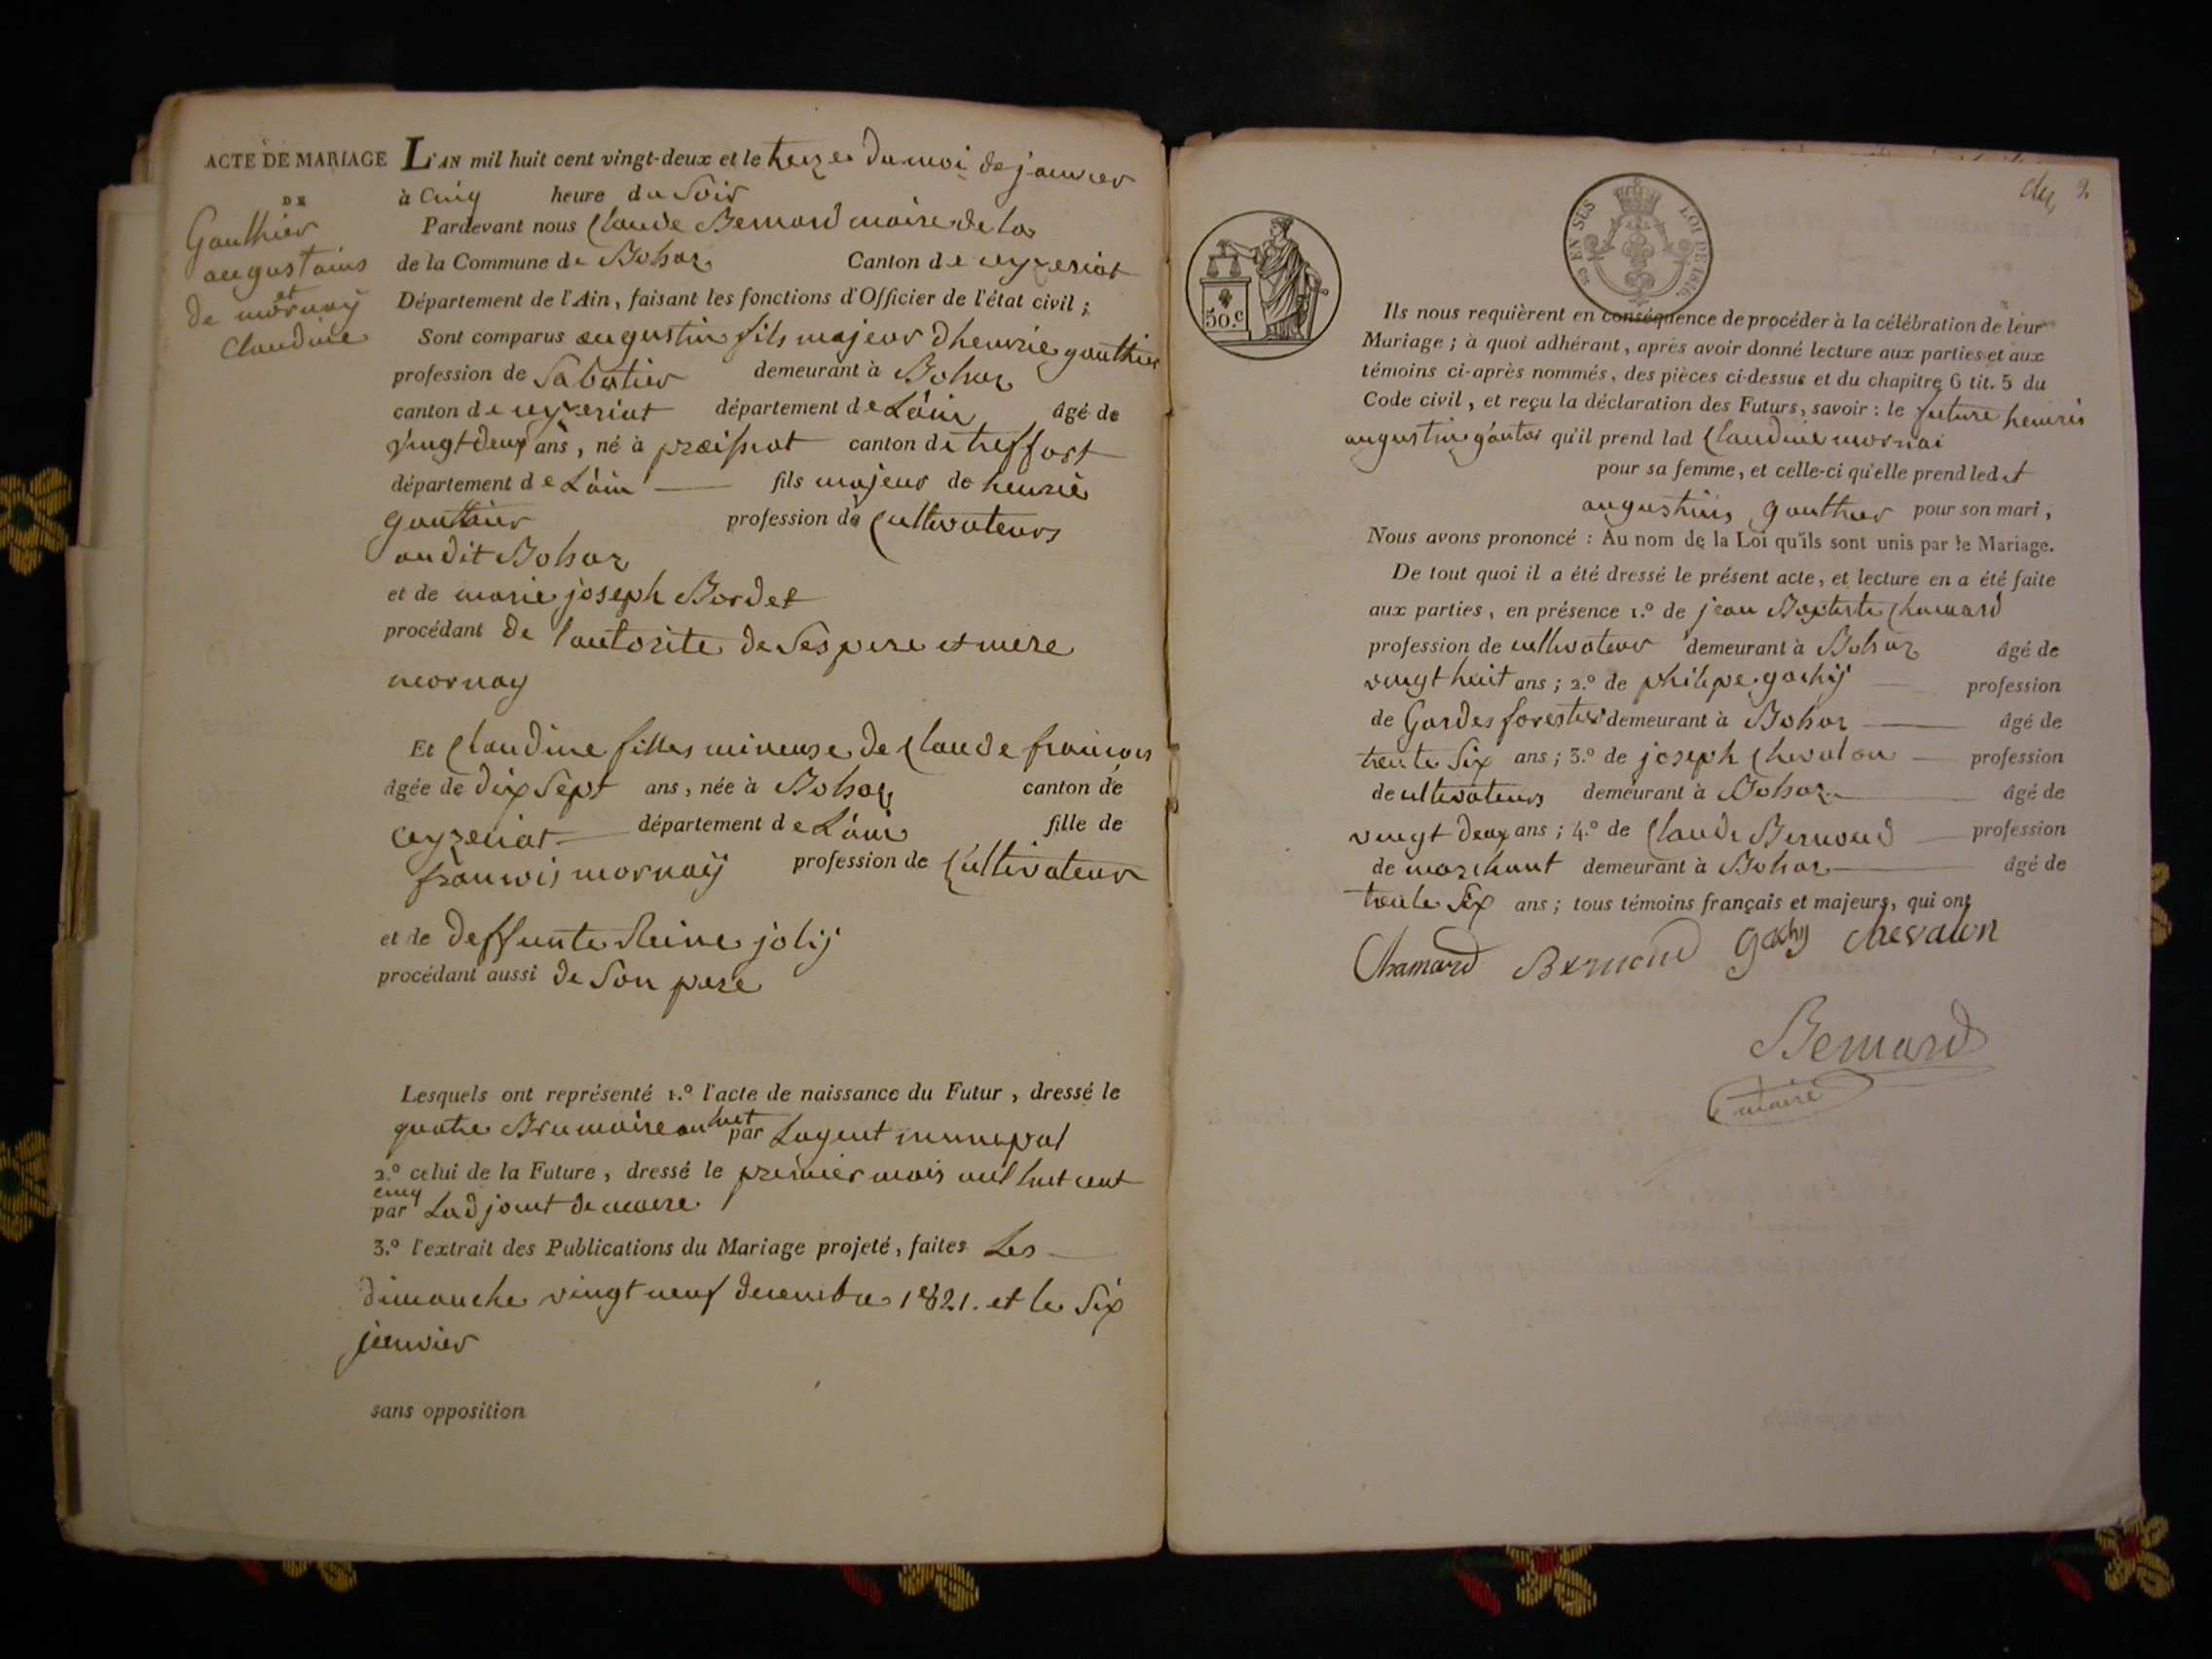 ACTE DE MARIAGE
DE
Gauthier
augustains
et
de mornay
Claudine
L'AN mil huit cent vingt-deux et le treze du moi de janvier
à Cinq heure du Soir
Pardevant nous Claude Bernard maire de la
de la Commune de Bohaz Canton de ceyzeriat
Département de l'Ain, faisant les fonctions d'Officier de l'état civil ;
Sont comparus augustin fils majeur d'henrie gauthier
profession de Sabotier demeurant à Bohaz
canton de ceyzeriat département de L'ain âgé de
vingt deux ans, né à canton de treffort
département de L'ain fils majeur de henrie
gauthier profession de Cultivateurs
audit Bohaz
et de marie joseph Bordet
procédant de l'autorite de Ses pere et mere
mornay
Et Claudine filles mineure de Claude francois
âgée de dix Sept ans, née à Bohaz canton de
ceyzeriat département de L'ain fille de
francois mornaÿ profession de Cultivateur
et de deffunte Reine joliÿ
procédant aussi de Son pere
Lesquels ont représenté 1.º l'acte de naissance du Futur, dressé le
quatre Brumaire an huit par Lagent municipal
2.º celui de la Future, dressé le premier mars mil huit cent
cinq
par Ladjoint de maire
3.º l'extrait des Publications du Mariage projeté, faites Les
dimanche vingt neuf decembre 1821. et le Six
jenvier
sans opposition
2
50.c
EN SUS LOI DE 1816
Ils nous requièrent en conséquence de procéder à la célébration de leur
Mariage ; à quoi adhérant, après avoir donné lecture aux parties et aux
témoins ci-après nommés, des pièces ci-dessus et du chapitre 6 tit. 5 du
Code civil, et reçu la déclaration des Futurs, savoir : le future henrie
augustin qu'il prend lad Claudine mornai
pour sa femme, et celle-ci qu'elle prend ledet
augustins gauthier pour son mari,
Nous avons prononcé : Au nom de la Loi qu'ils sont unis par le Mariage.
De tout quoi il a été dressé le présent acte, et lecture en a été faite
aux parties, en présence 1.º de jean Baptiste Chamard
profession de cultivateur demeurant à Bohaz âgé de
vingt huit ans ; 2.º de philipe gachÿ profession
de Gardes forestier demeurant à Bohaz âgé de
trente Six ans ; 3.º de joseph Chevalon profession
de cultivateurs demeurant à Bohaz âgé de
vingt deux ans ; 4.º de Claude Bernoud profession
de marchant demeurant à Bohaz âgé de
trente Six ans ; tous témoins français et majeurs, qui ont
Chamard Bernoud Gachÿ chevalon
Bernard
maire